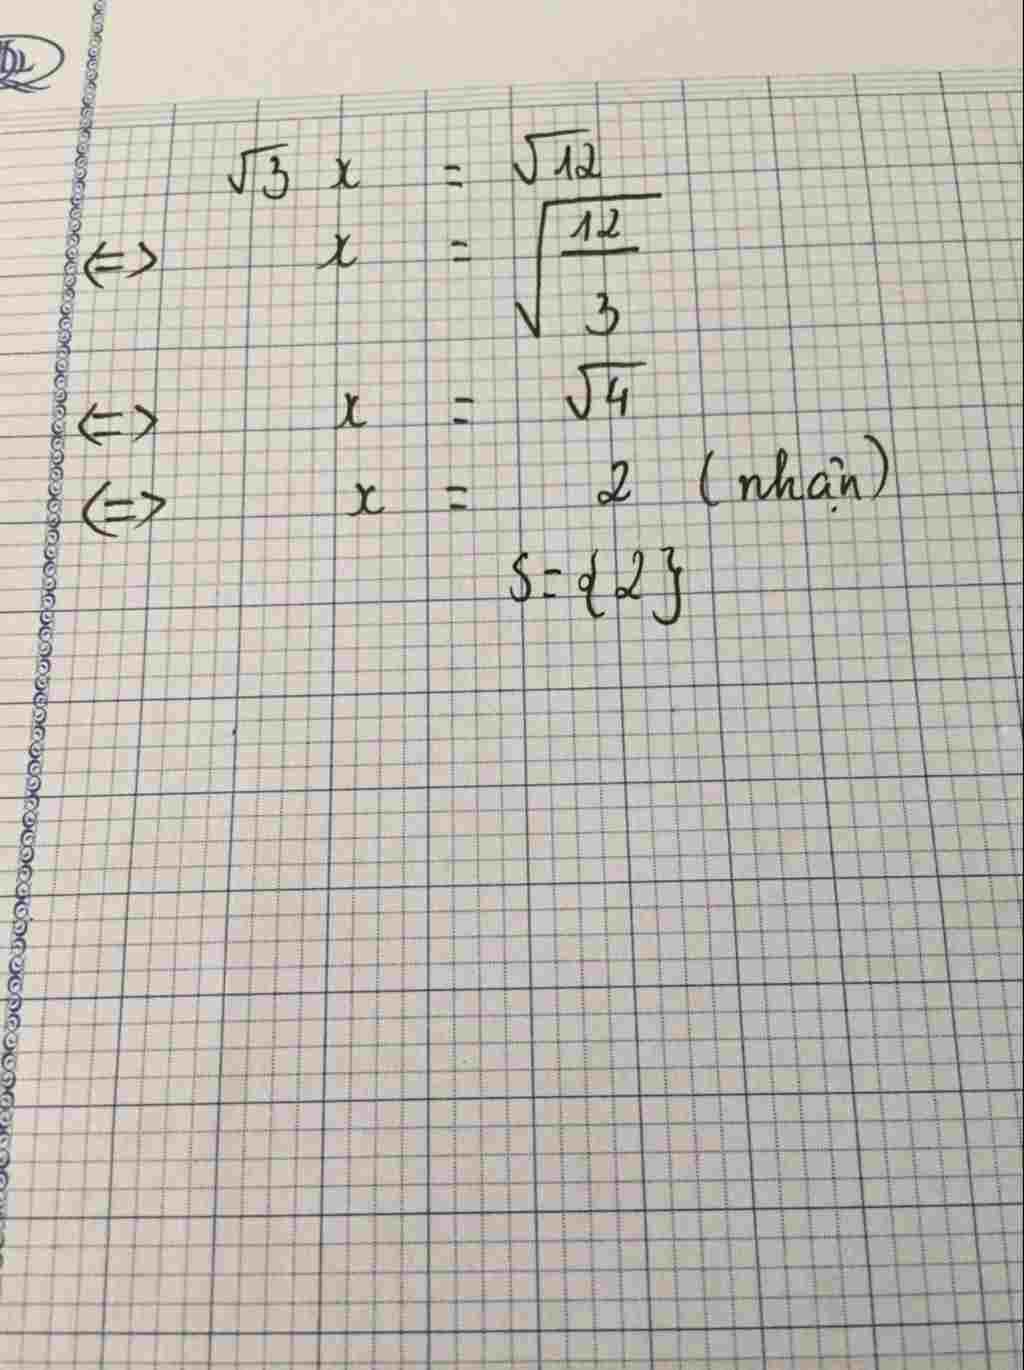 √3 x = √12
<=> x = √(12/3)
<=> x = √4
<=> x = 2 (nhận)
S = {2}